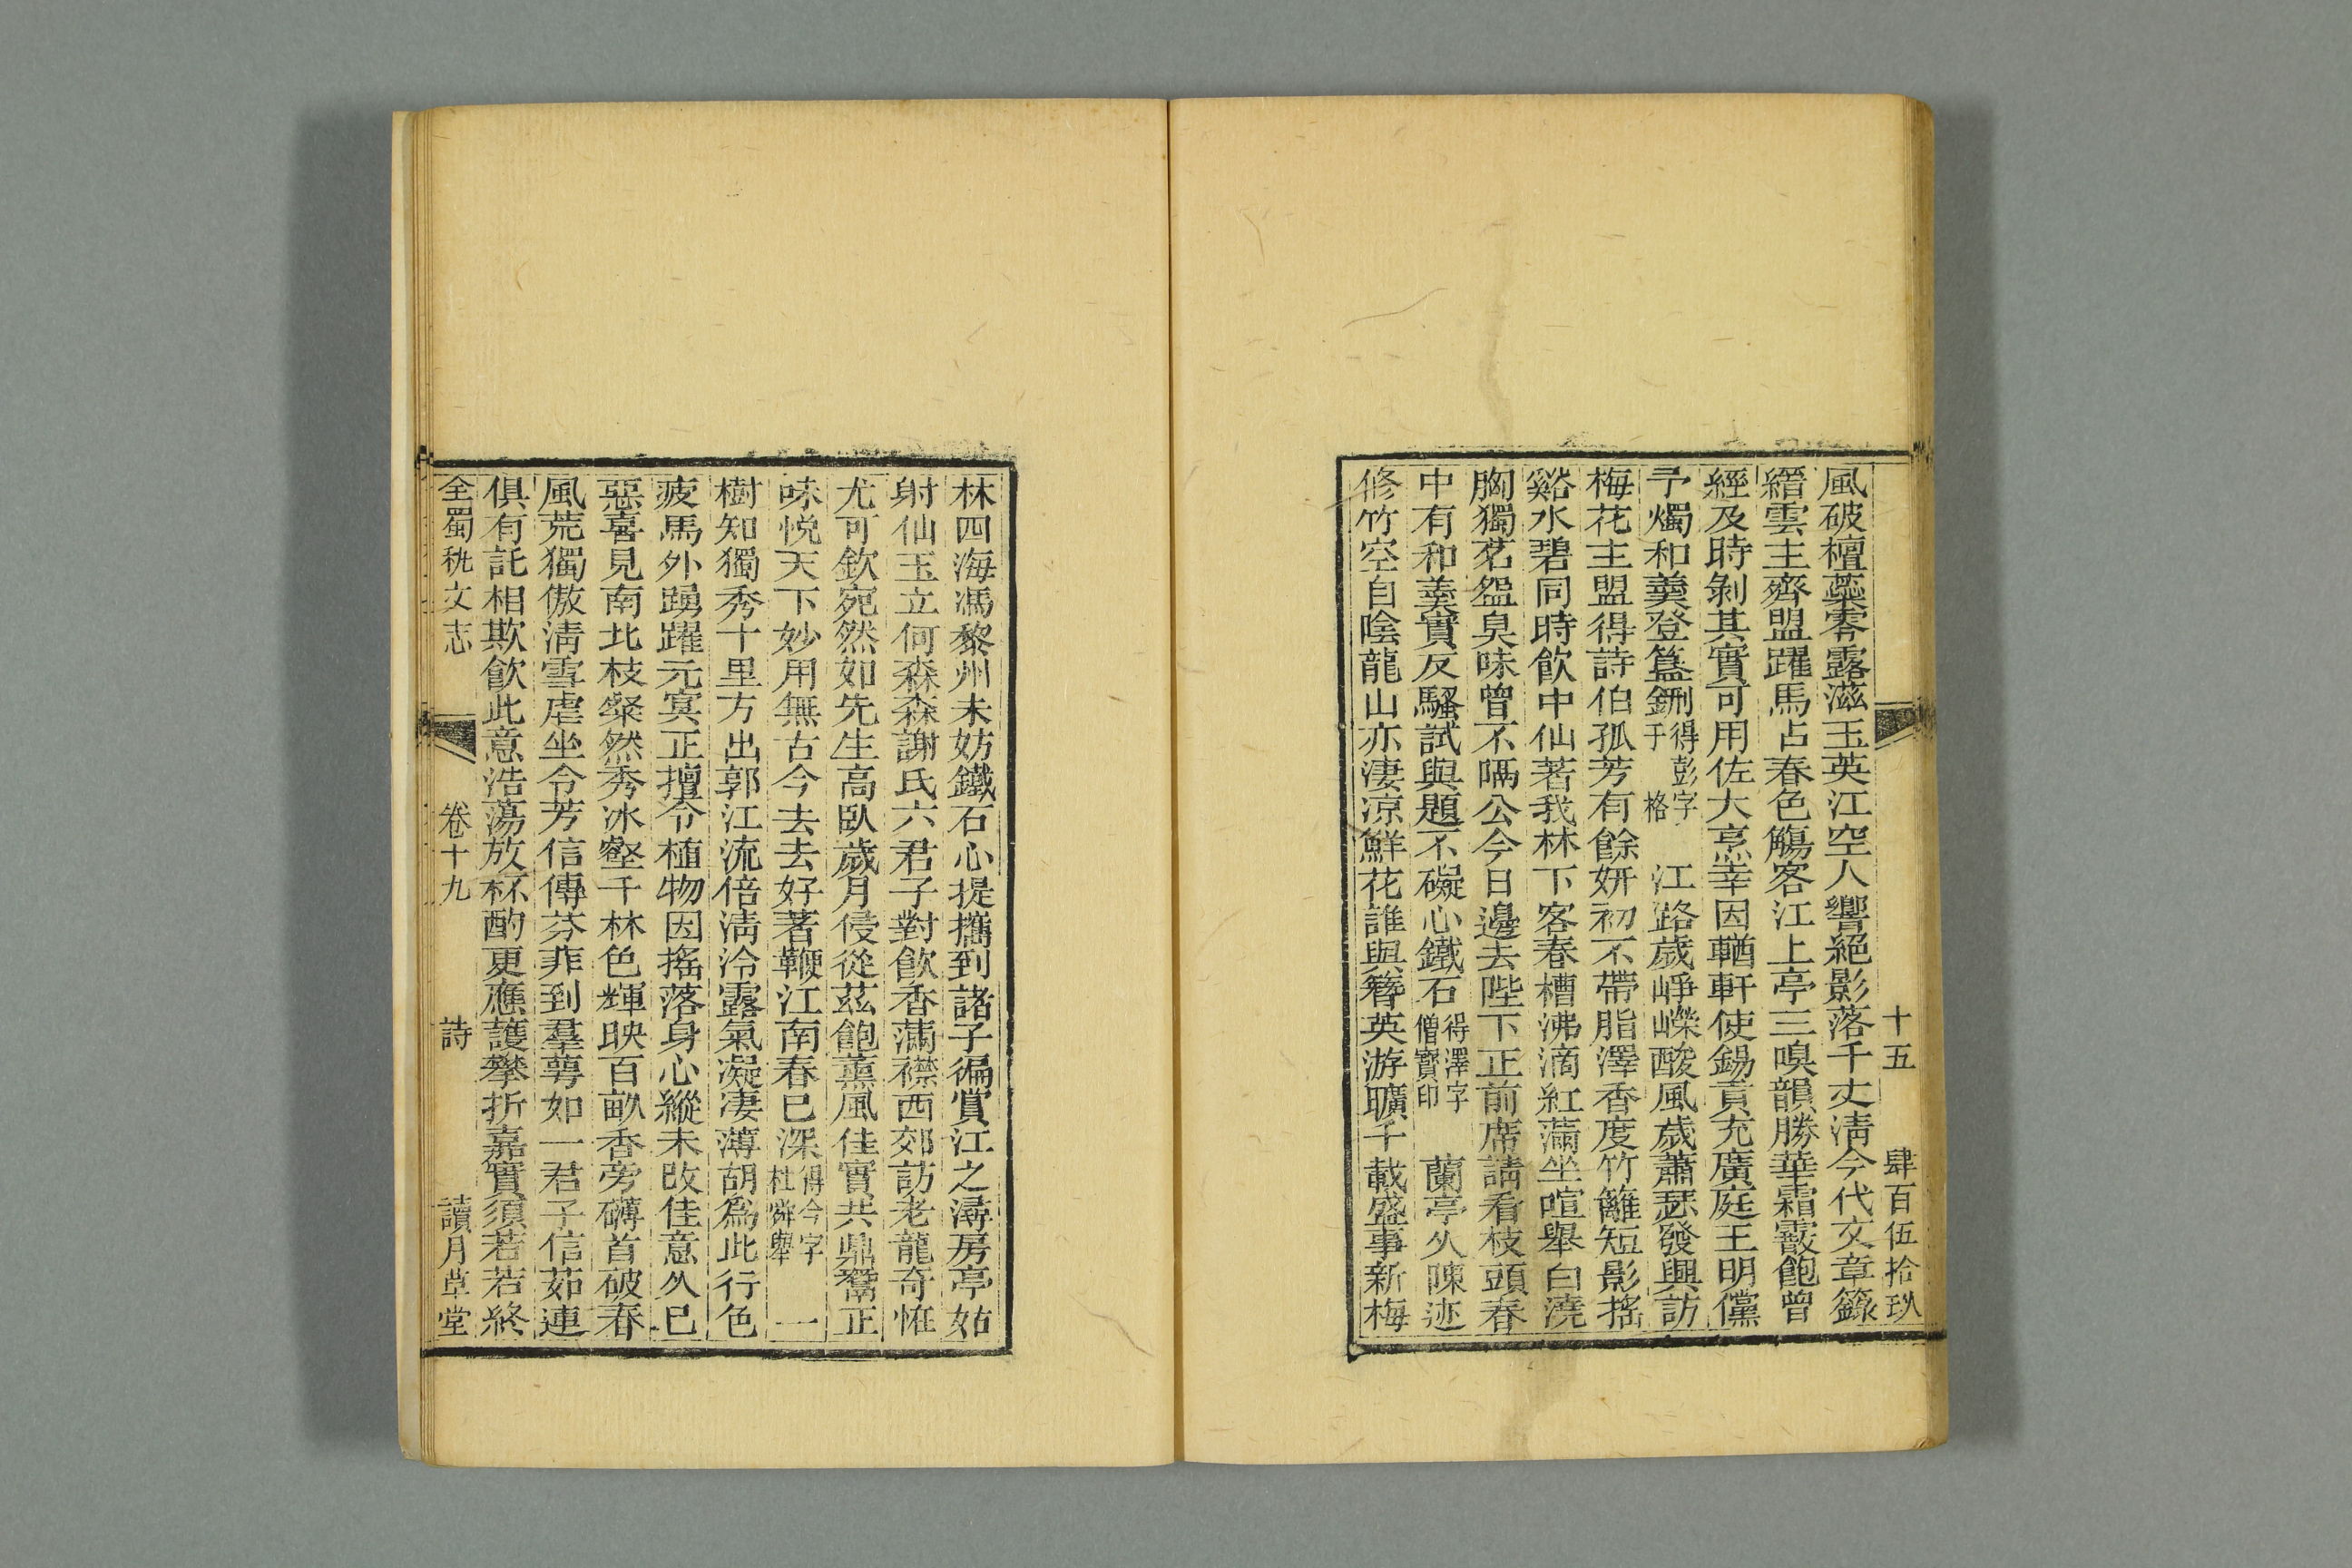 十五　肆百伍拾玖
風破檀蘂零露滋玉英江空人響絕影落千丈淸今代文章籙
縉雲主齊盟躍馬占春色觴客江上亭三嗅韻勝華霜霰飽曾
經及時剝其實可用佐大烹幸因輶軒使錫貢充廣庭王明儻
予燭和羹登簋鉶得彭字于格　江路歲崢嶸酸風歲蕭瑟發興訪
梅花主盟得詩伯孤芳有餘妍初不帶脂澤香度竹籬短影搖
谿水碧同時飮中仙著我林下客春槽沸滴紅滿坐喧舉白澆
胸獨茗盌臭味曾不隔公今日邊去陛下正前席請看枝頭春
中有和羹實反騷試與題不礙心鐵石得澤字僧寶印　蘭亭久陳迹
修竹空自陰龍山亦淒凉鮮花誰與簪英游曠千載盛事新梅
林四海馮黎州未妨鐵石心提攜到諸子徧賞江之潯房亭姑
射仙玉立何森森謝氏六君子對飮香滿襟西郊訪老龍奇恠
尤可欽宛然如先生高臥歲月侵從茲飽薰風佳實共鼎鬵正
味悅天下妙用無古今去去好著鞭江南春已深得今字杜舜舉　一
樹知獨秀十里方出郭江流倍淸泠露氣凝淒薄胡爲此行色
疲馬外踴躍元冥正擅令植物因搖落身心縱未改佳意久已
惡喜見南北枝粲然秀冰壑千林色輝映百畝香旁礴首破春
風荒獨傲淸雪虐坐令芳信傳芬菲到羣萼如一君子信茹連
俱有託相欺飮此意浩蕩放杯酌更應護攀折嘉實須若若終
全蜀秇文志　卷十九　詩　讀月草堂